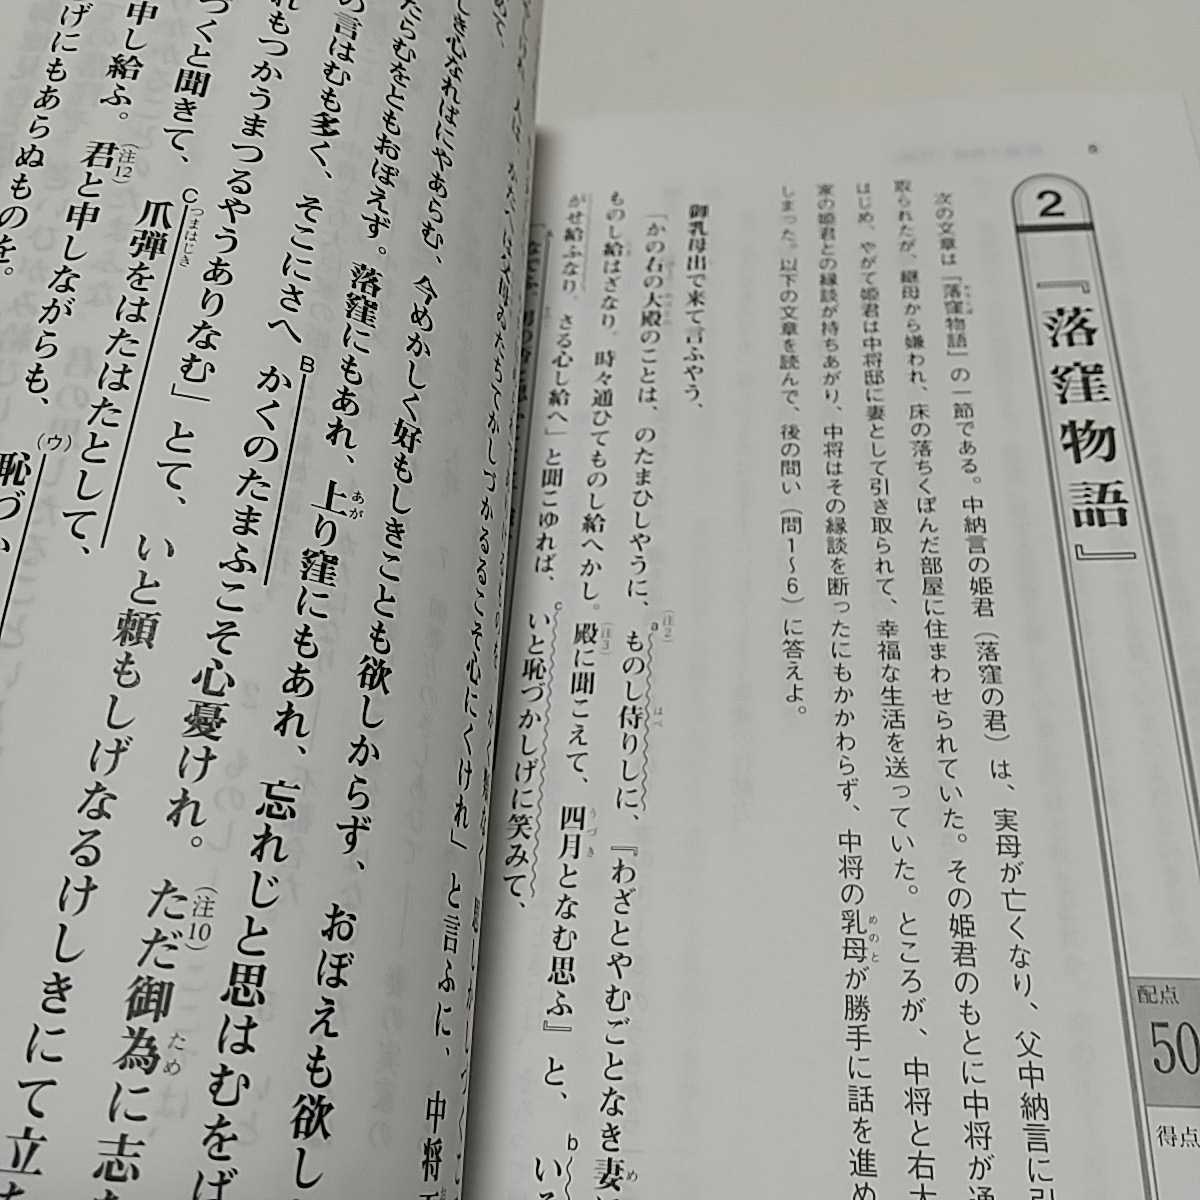 2
『落窪物語』
配点
50
得点
次の文章は『落窪物語』の一節である。中納言の姫君(落窪の君)は、実母が亡くなり、父中納言に引
取られたが、継母から嫌われ、床の落ちくぼんだ部屋に住まわせられていた。その姫君のもとに中将が通
はじめ、やがて姫君は中将邸に妻として引き取られて、幸福な生活を送っていた。ところが、中将と右大
家の姫君との縁談が持ちあがり、中将はその縁談を断ったにもかかわらず、中将の乳母が勝手に話を進め
しまった。以下の文章を読んで、後の問い(問1〜6)に答えよ。
御乳母出で来て言ふやう、
「かの右の大殿のことは、のたまひしやうに、ものし侍りしに、『わざとやむごとなき妻
ものし給はざなり。時々通ひてものし給へかし。殿に聞こえて、四月となむ思ふ』と、
がせ給ふなり。さる心し給へ」と聞こゆれば、いと恥づかしげに笑みて、
かしづかるるこそ心にくけれ」と言ふに、中将
しき心なればにやあらむ、今めかしく好もしきことも欲しからず、おぼえも欲し
たらむをともおぼえず。落窪にもあれ、上り窪にもあれ、忘れじと思はむをば
の言はむも多く、そこにさへかくのたまふこそ心憂けれ。ただ御為に志
れもつかうまつるやうありなむ」とて、いと頼もしげなるけしきにて立
づくと聞きて、爪弾をはたはたとして、
申し給ふ。君と申しながらも、恥づ
げにもあらぬものを。